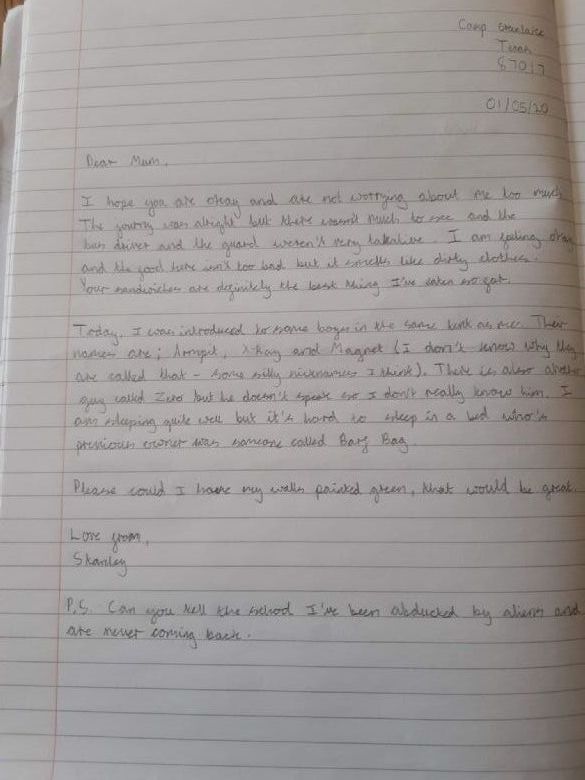 Camp Greenlake
Texas
87017
01/05/20
Dear Mum,
I hope you are okay and are not worrying about me too much.
The journy was alright but there wasn't much to see and the
bus driver and the guard weren't very talkative. I am feeling okay
and the food here isn't too bad but it smells like dirty clothes.
Your sandwiches are definitely the best thing I've eaten so far.
Today, I was introduced to some boys in the same tent as me. Their
names are; Armpit, X-Ray and Magnet (I don't know why they
are called that - some silly nicknames I think). There is also another
guy called Zero but he doesn't speak so I don't really know him. I
am sleeping quite well but it's hard to sleep in a bed who's
previous owner was someone called Barf Bag.
Please could I have my walls painted green, that would be great.
Love from,
Stanley
P.S. Can you tell the school I've been abducted by aliens and
are never coming back.